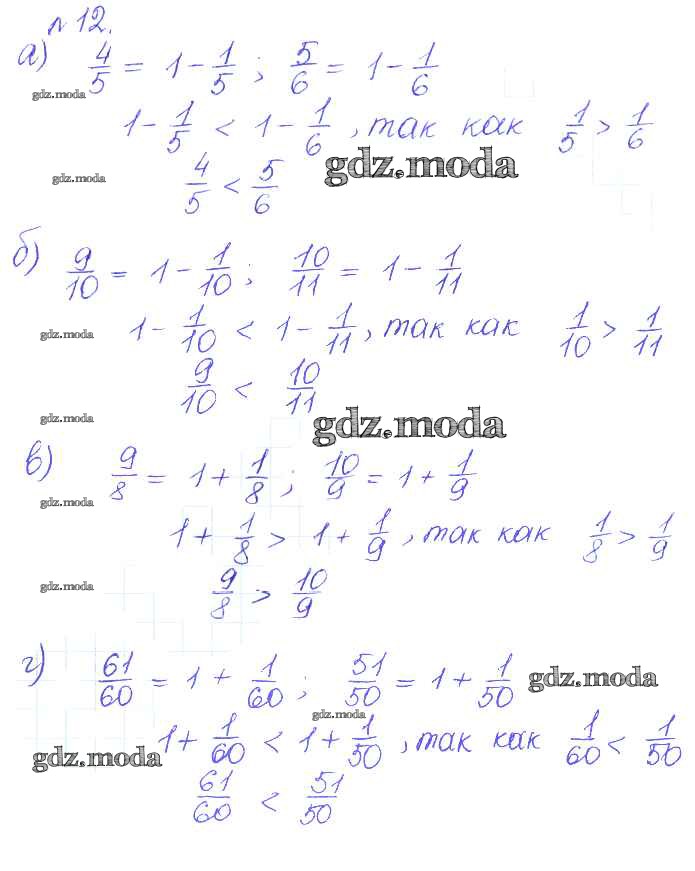 № 12.
а) 4/5 = 1 - 1/5 ; 5/6 = 1 - 1/6
gdz.moda
1 - 1/5 < 1 - 1/6 , так как 1/5 > 1/6
gdz.moda
gdz.moda
4/5 < 5/6
б) 9/10 = 1 - 1/10 ; 10/11 = 1 - 1/11
gdz.moda
1 - 1/10 < 1 - 1/11 , так как 1/10 > 1/11
9/10 < 10/11
gdz.moda
gdz.moda
в) 9/8 = 1 + 1/8 ; 10/9 = 1 + 1/9
gdz.moda
1 + 1/8 > 1 + 1/9 , так как 1/8 > 1/9
gdz.moda
9/8 > 10/9
г) 61/60 = 1 + 1/60 ; 51/50 = 1 + 1/50
gdz.moda
gdz.moda
1 + 1/60 < 1 + 1/50 , так как 1/60 < 1/50
gdz.moda
61/60 < 51/50